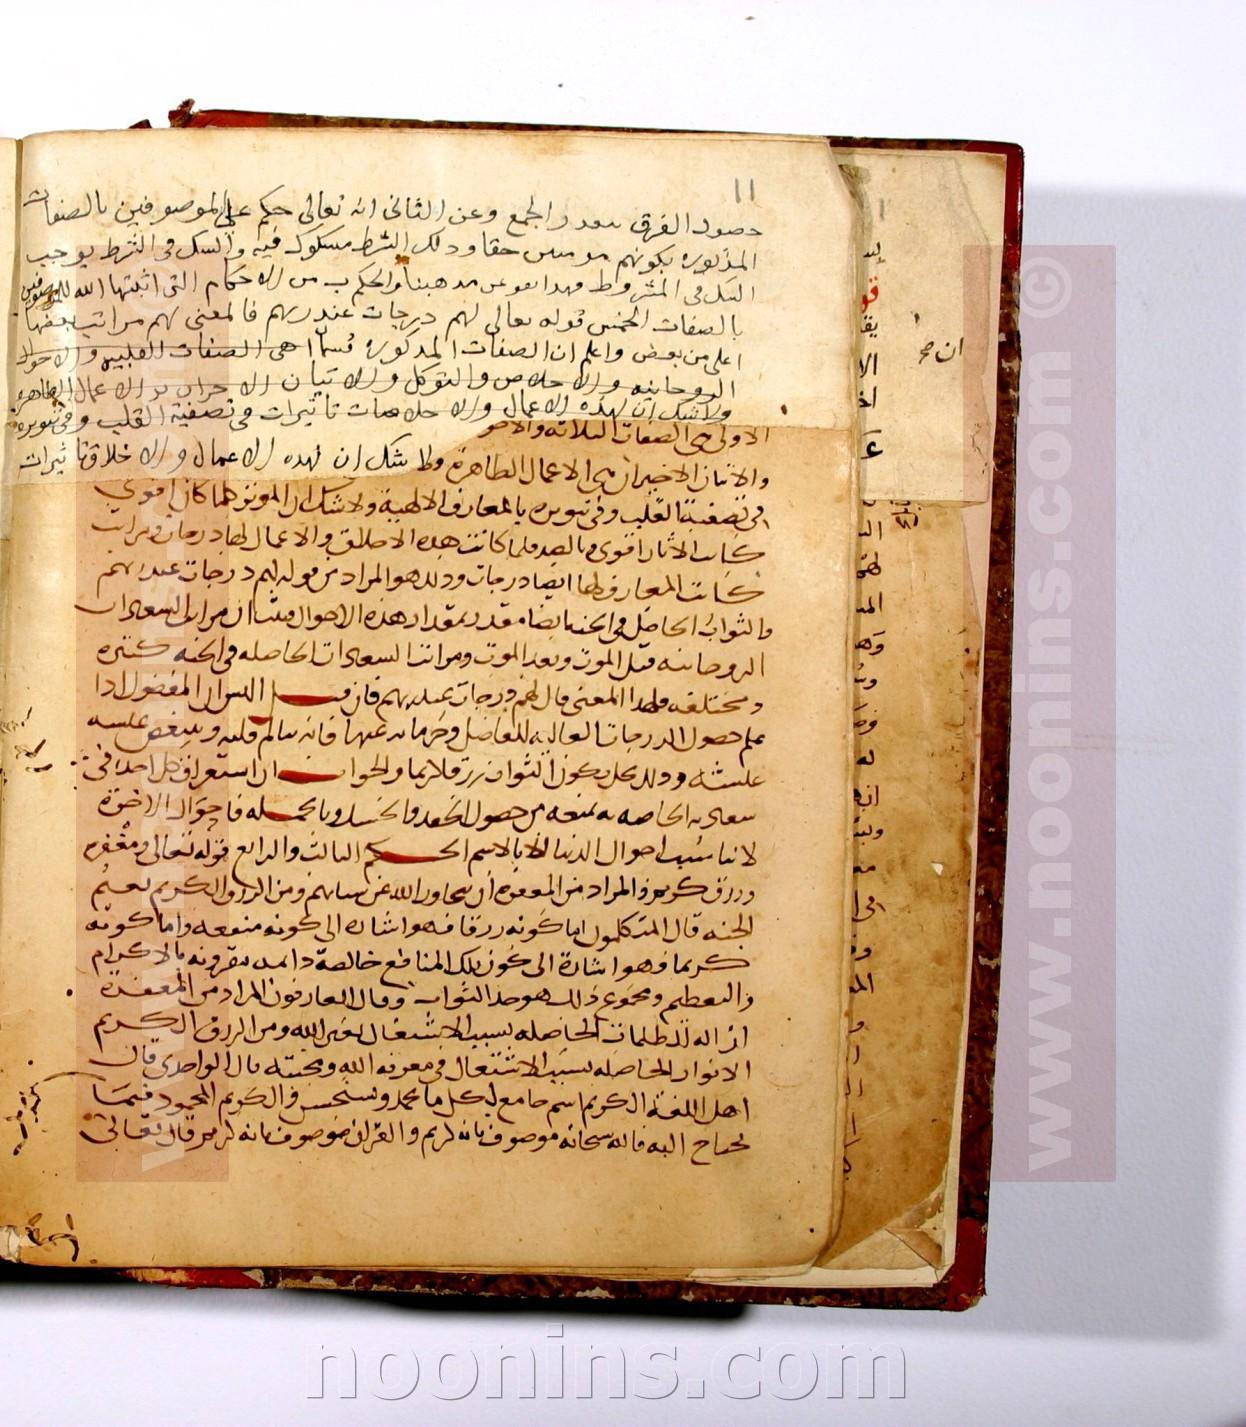 ١١
حصول الفرق بعد و الجمع وعن الثانى انه تعالى حكم على الموصوفين بالصفات
المذكوره بكونهم مومنين حقا وذلك الشرط مشكوك فيه والشك فى الشرط يوجب
الشك فى المشروط فهذا يقوى عين مذهبنا والحكم ب من الاحكام التى اثبتها الله للموصوفين
بالصفات الخمس قوله تعالى لهم درجات عند ربهم فالمعنى لهم مراتب بعضها
اعلى من بعض واعلم ان الصفات المذكوره قسما هى الصفات القلبيه والاحوال
الروحانيه والاخلاص والتوكل والاتيان الاخران هو الاعمال الظاهره
ولا شك ان لهذه الاعمال والاخلاصات تاثيرات فى تصفية القلب وفى تنويره
الاولى هى الصفات الثلاثه والاخر
والاتنان الاخيران هى الاعمال الظاهرة ولا شك ان لهذه الاعمال والاخلاق تاثيرات
فى تصفية القلب وفى تنويره بالمعارف الالهية ولا شك ان الموثر كلما كان اقوى
كانت الاثار اقوى وبالضد فلما كانت هذه الاخلاق والاعمال لها درجات ومراتب
كانت المعارف لها ايضا درجات وذلك هو المراد من قوله لهم درجات عند ربهم
والثواب الحاصل فى الجنه ايضا مقدر بمقدار هذه الاحوال فثبت ان مراتب السعادات
الروحانيه قبل الموت وبعد الموت ومراتب السعادات الحاصله فى الجنه كثيره
ومختلفه فلهذا المعنى قال لهم درجات عند ربهم فان قيل اليس ان المفضول اذا
علم حصول الدرجات العاليه للفاضل وحرمانه عنها فانه يتالم قلبه ويتنغص عليه
عيشه وذلك مخل بكون الثواب رزقا كريما والجواب ان استغراق كل احد فى
سعادته الخاصه به تمنعه من حصول الحقد والحسد وبالجمله فاحوال الاخرة
لا تناسب احوال الدنيا الا بالاسم الحكم الثالث والرابع قوله تعالى ومغفره
ورزق كريم والمراد من المغفره ان يتجاوز الله عن سياتهم ومن الرزق الكريم نعيم
الجنه قال المتكلمون اما كونه رزقا فهو اشاره الى كونه منفعه واما كونه
كريما فهو اشارة الى كون تلك المنافع خالصة دايمه مقرونه بالاكرام
والتعظيم ومجموع ذلك هو حد الثواب وقال العارفون المراد من المغفرة
ازاله الظلمات الحاصله بسبب الاشتغال بغير الله ومن الرزق الكريم
الانوار الحاصله بسبب الاشتغال فى معرفه الله ومحبته قال الواحدى قال
اهل اللغة الكريم اسم جامع لكل ما يحمد ويستحسن والكريم المحمود فيما
يحتاج اليه فالله سبحانه موصوف بانه كريم والقران موصوف بانه كريم قال تعالى
ان صح
www.noonins.com ©
noonins.com